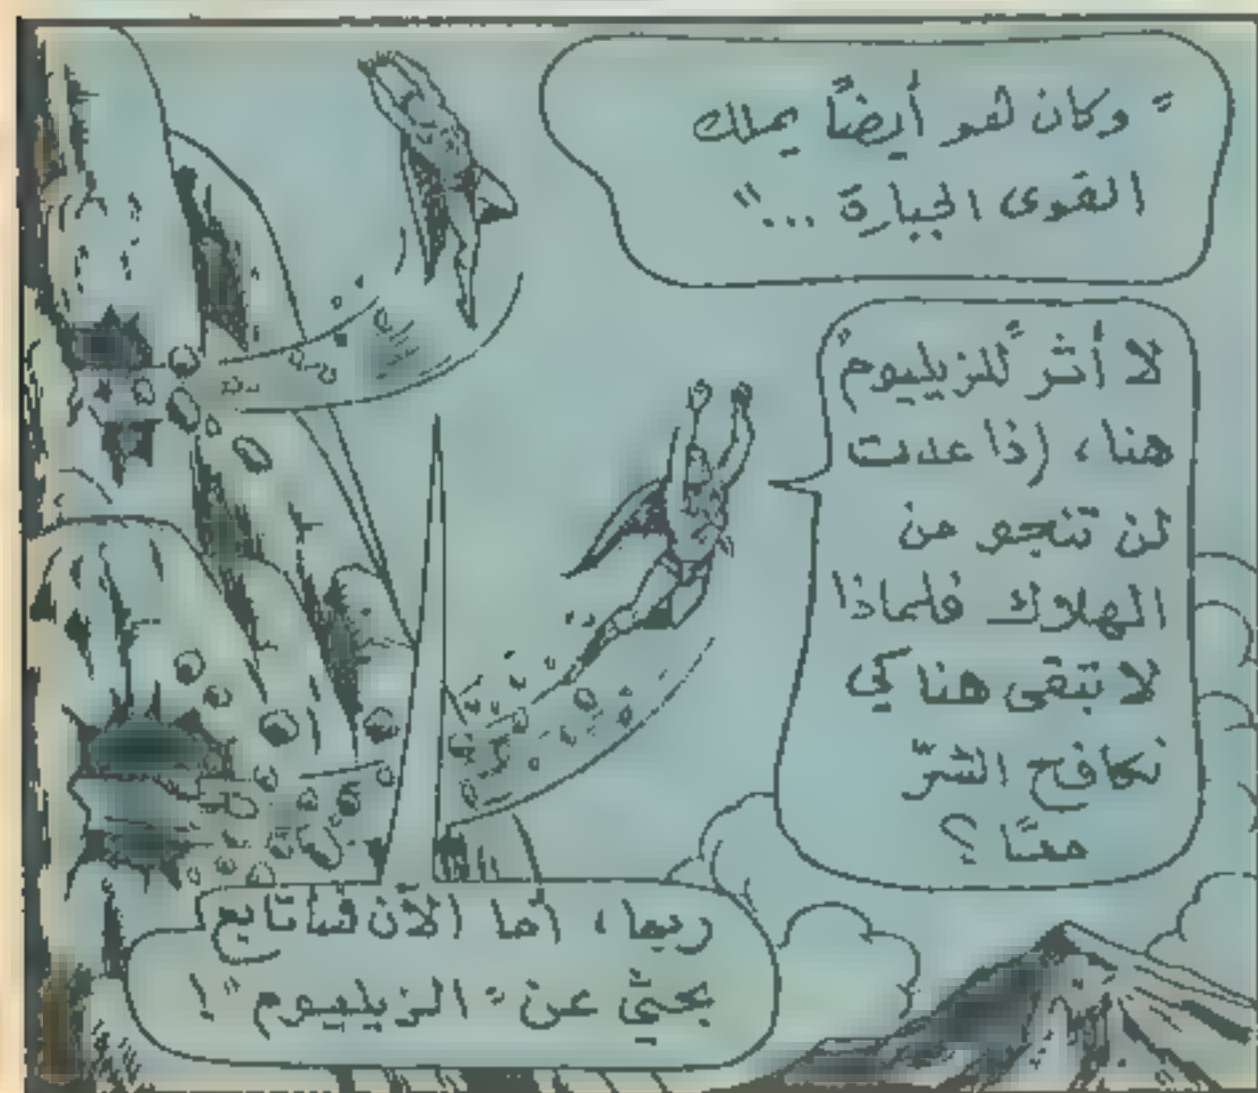 "وكان هو أيضاً يملك
القوى الجبارة ..."
لا أثر "للزيليوم"
هنا، إذا عدت
لن تنجو من
الهلاك فلماذا
لا تبقى هنا كي
نكافح الشرّ
معًا ؟
ربما، أما الآن فسأتابع
بحثي عن "الزيليوم" !